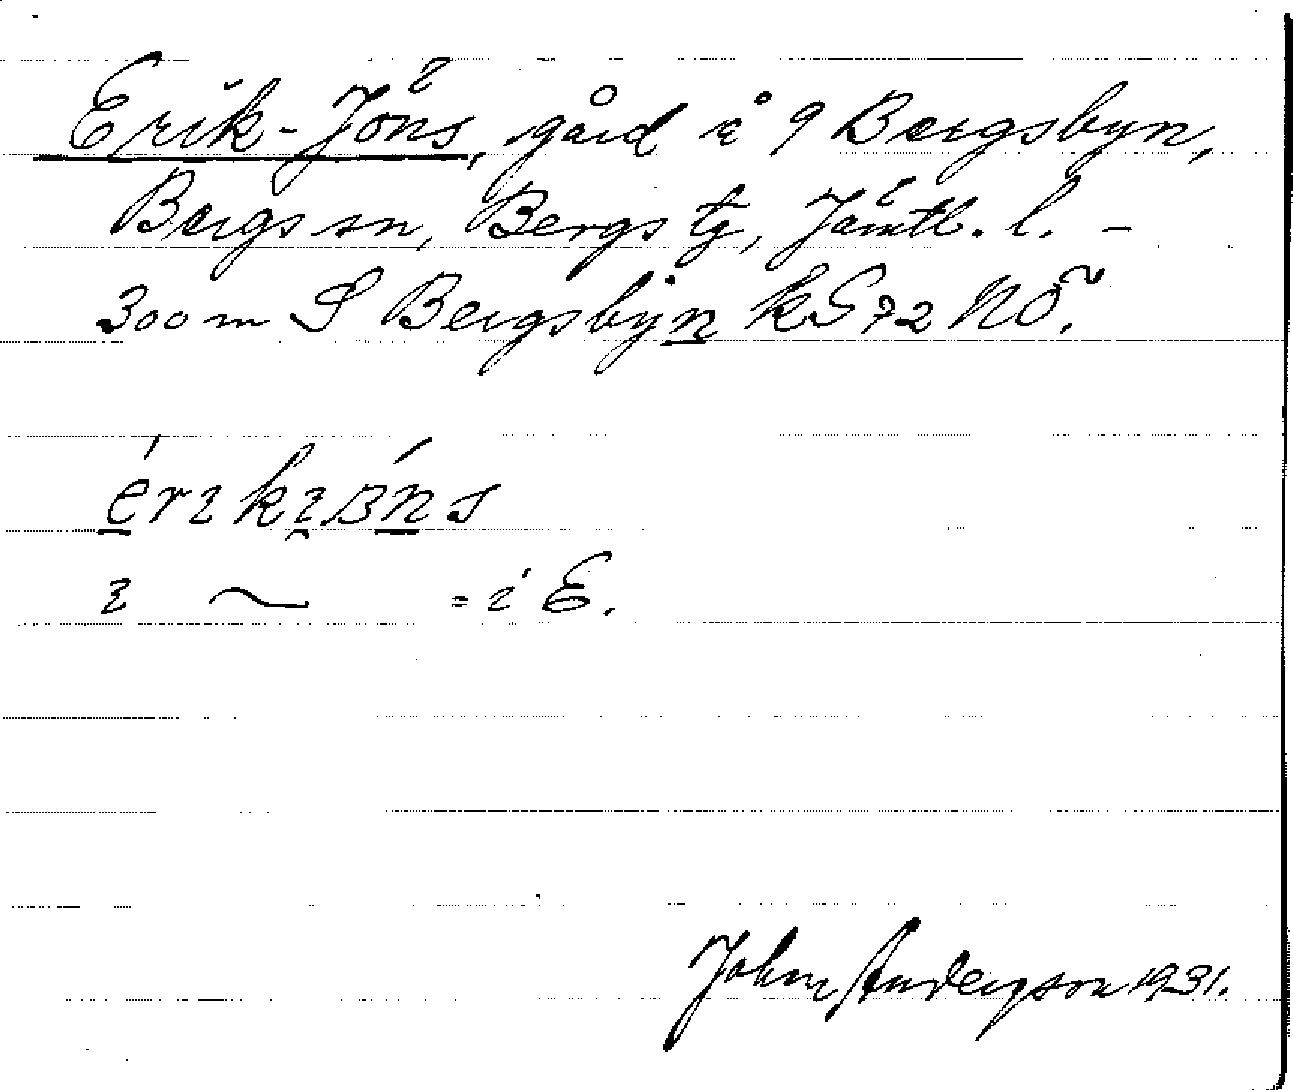 Erik-Jöns, gård å 9 Bergsbyn,
Bergs sn, Bergs tg, Jämtl. l. -
300 m S Bergsbyn k G 72 NÖ.
= i E.
John Anderson 1931.